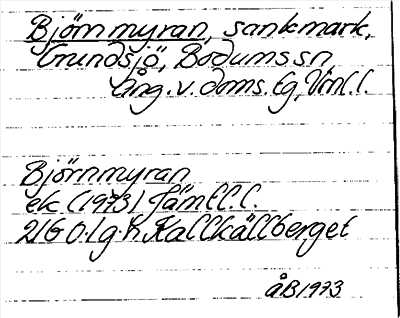 Björnmyran, sankmark,
Grundsjö, Bodums sn,
Ång. v. doms. tg, Vnl.l.
Björnmyran
ek (1973) Jämtl.l.
21G 0.lg.h Kallkällberget
åB 1973